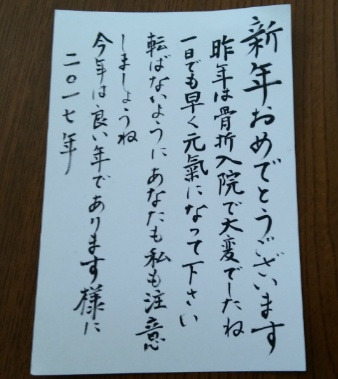 新年おめでとうございます
昨年は骨折入院で大変でしたね
一日でも早く元氣になって下さい
転ばないようにあなたも私も注意
しましょうね
今年は良い年であります様に
二〇一七年